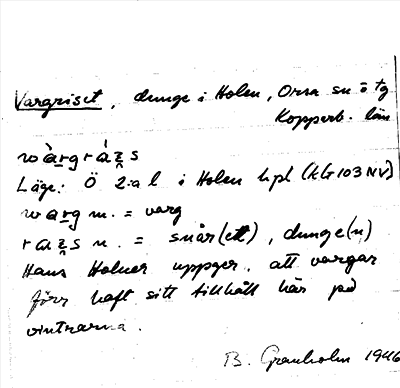 Vargriset, dunge i Holen, Orsa sn ö tg
Kopparb. län
wàrgrázs
Läge: Ö 2:a l i Holen hpl (kG 103 NV)
warg m. = varg
razs n. = snår (ett), dunge(n)
Hans Holmer uppger, att vargar
förr haft sitt tillhåll här på
vintrarna.
B. Granholm 1946